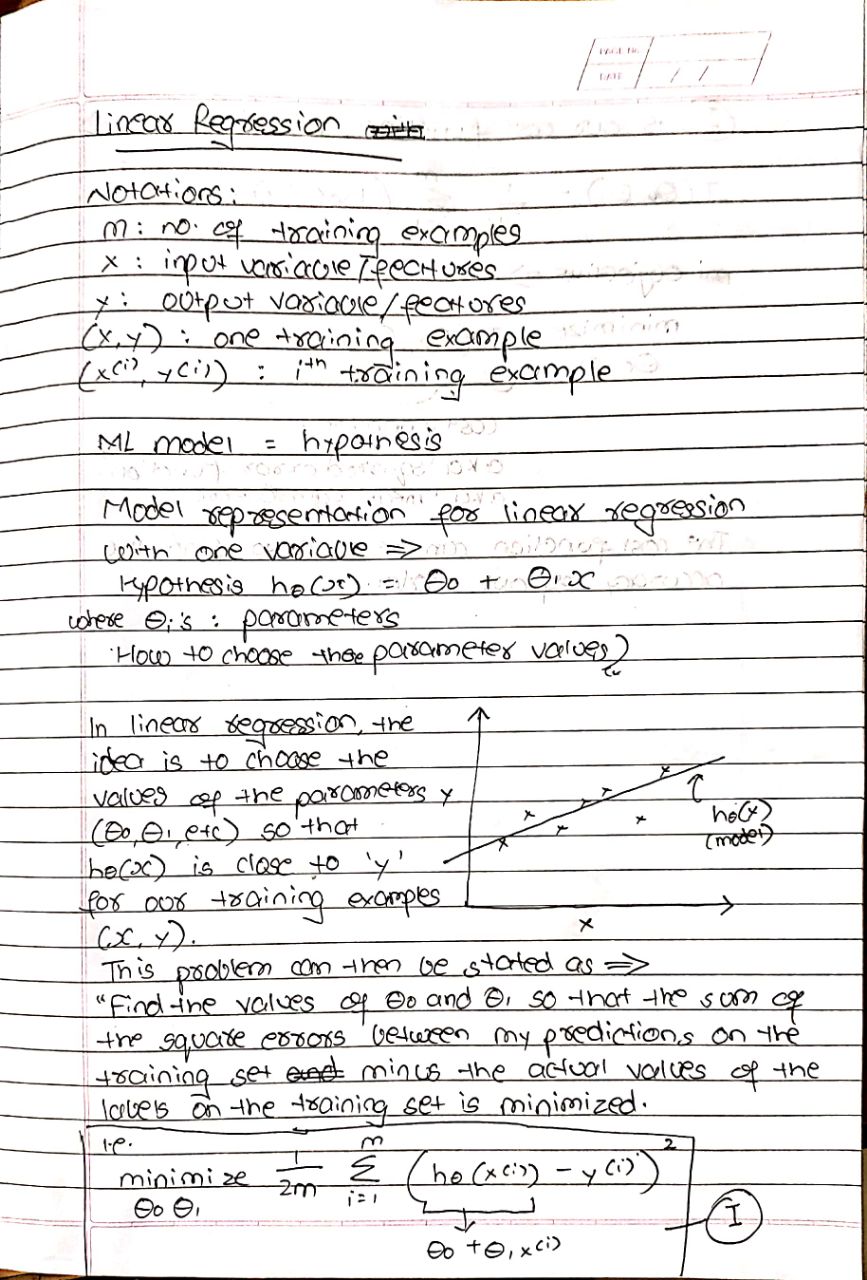 PAGE No.
DATE / /
linear Regression
Notations:
m: no. of training examples
x : input variable/feactures
y : output variable/feactures
(x,y) : one training example
(x(i), y(i)) : ith training example
ML model = hypothesis
Model representation for linear regression
with one variable =>
Hypothesis hθ(x) = θ0 + θ1x
where θi's : parameters
How to choose these parameter values?
In linear regression, the
idea is to choose the
values of the parameters
(θ0, θ1, etc) so that
hθ(x) is close to 'y'
for our training examples
(x, y).
y
hθ(x)
(model)
x
This problem can then be started as =>
"Find the values of θ0 and θ1 so that the sum of
the square errors between my predictions on the
training set and minus the actual values of the
labels on the training set is minimized.
i.e.
minimize θ0 θ1 1/2m m Σ i=1 (hθ(x(i)) - y(i))2
θ0 + θ1x(i)
I